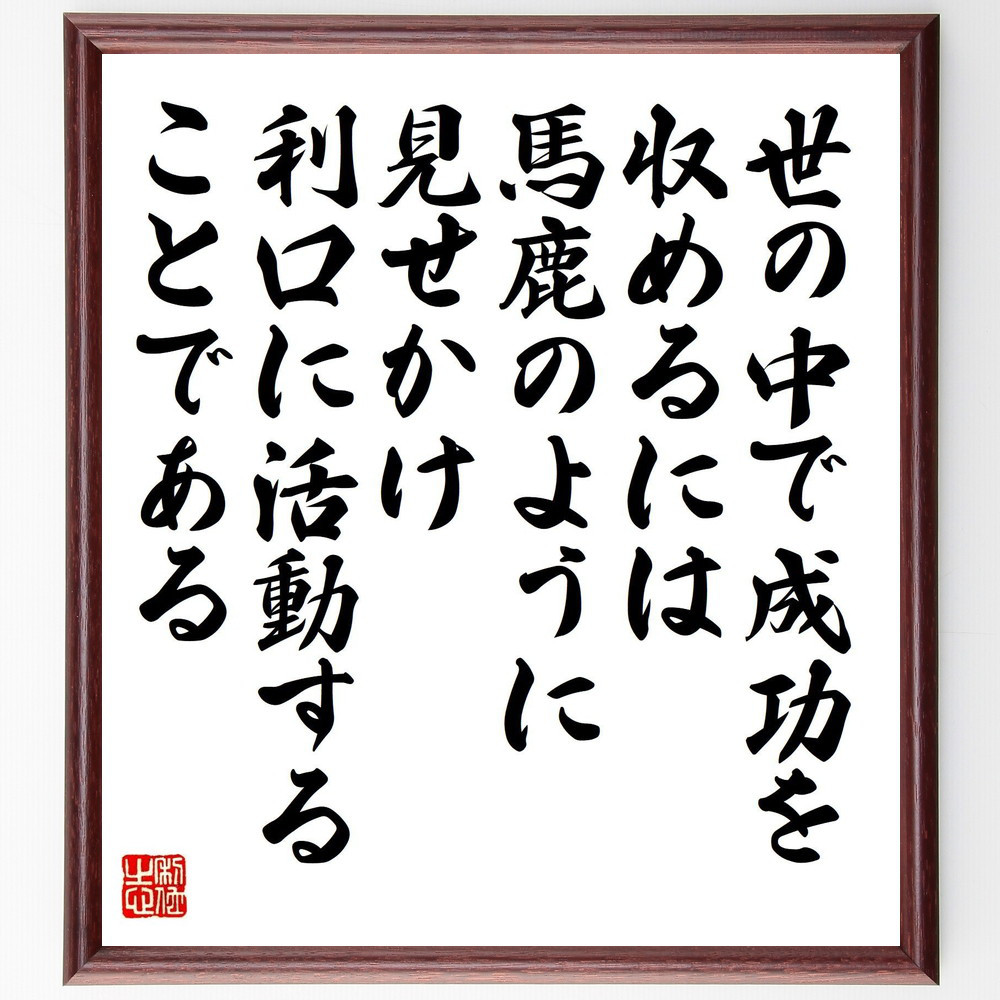 世の中で成功を
収めるには
馬鹿のように
見せかけ
利口に活動する
ことである